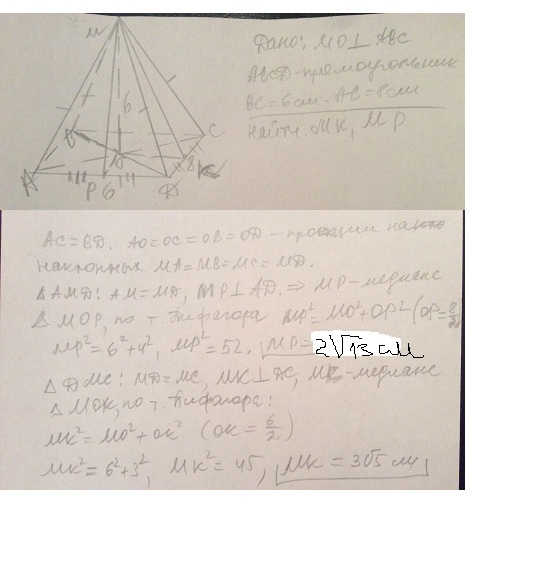 M
Дано: MO⊥ABC
ABCD-прямоугольник
BC=6см. AB=8см
Найти MK, MP
6
B
C
O
8
K
A
P
6
D
AC=BD. AO=OC=OB=OD - проекции
наклонных MA=MB=MC=MD.
△AMD: AM=MD, MP⊥AD. ⇒ MP-медиана
△MOP, по т. Пифагора MP²=MO²+OP² (OP=8/2)
MP²=6²+4², MP²=52. MP=2√13 см
△DMC: MD=MC, MK⊥DC, MK-медиана
△MOK, по т. Пифагора:
MK²=MO²+OK² (OK=6/2)
MK²=6²+3², MK²=45, MK=3√5 см